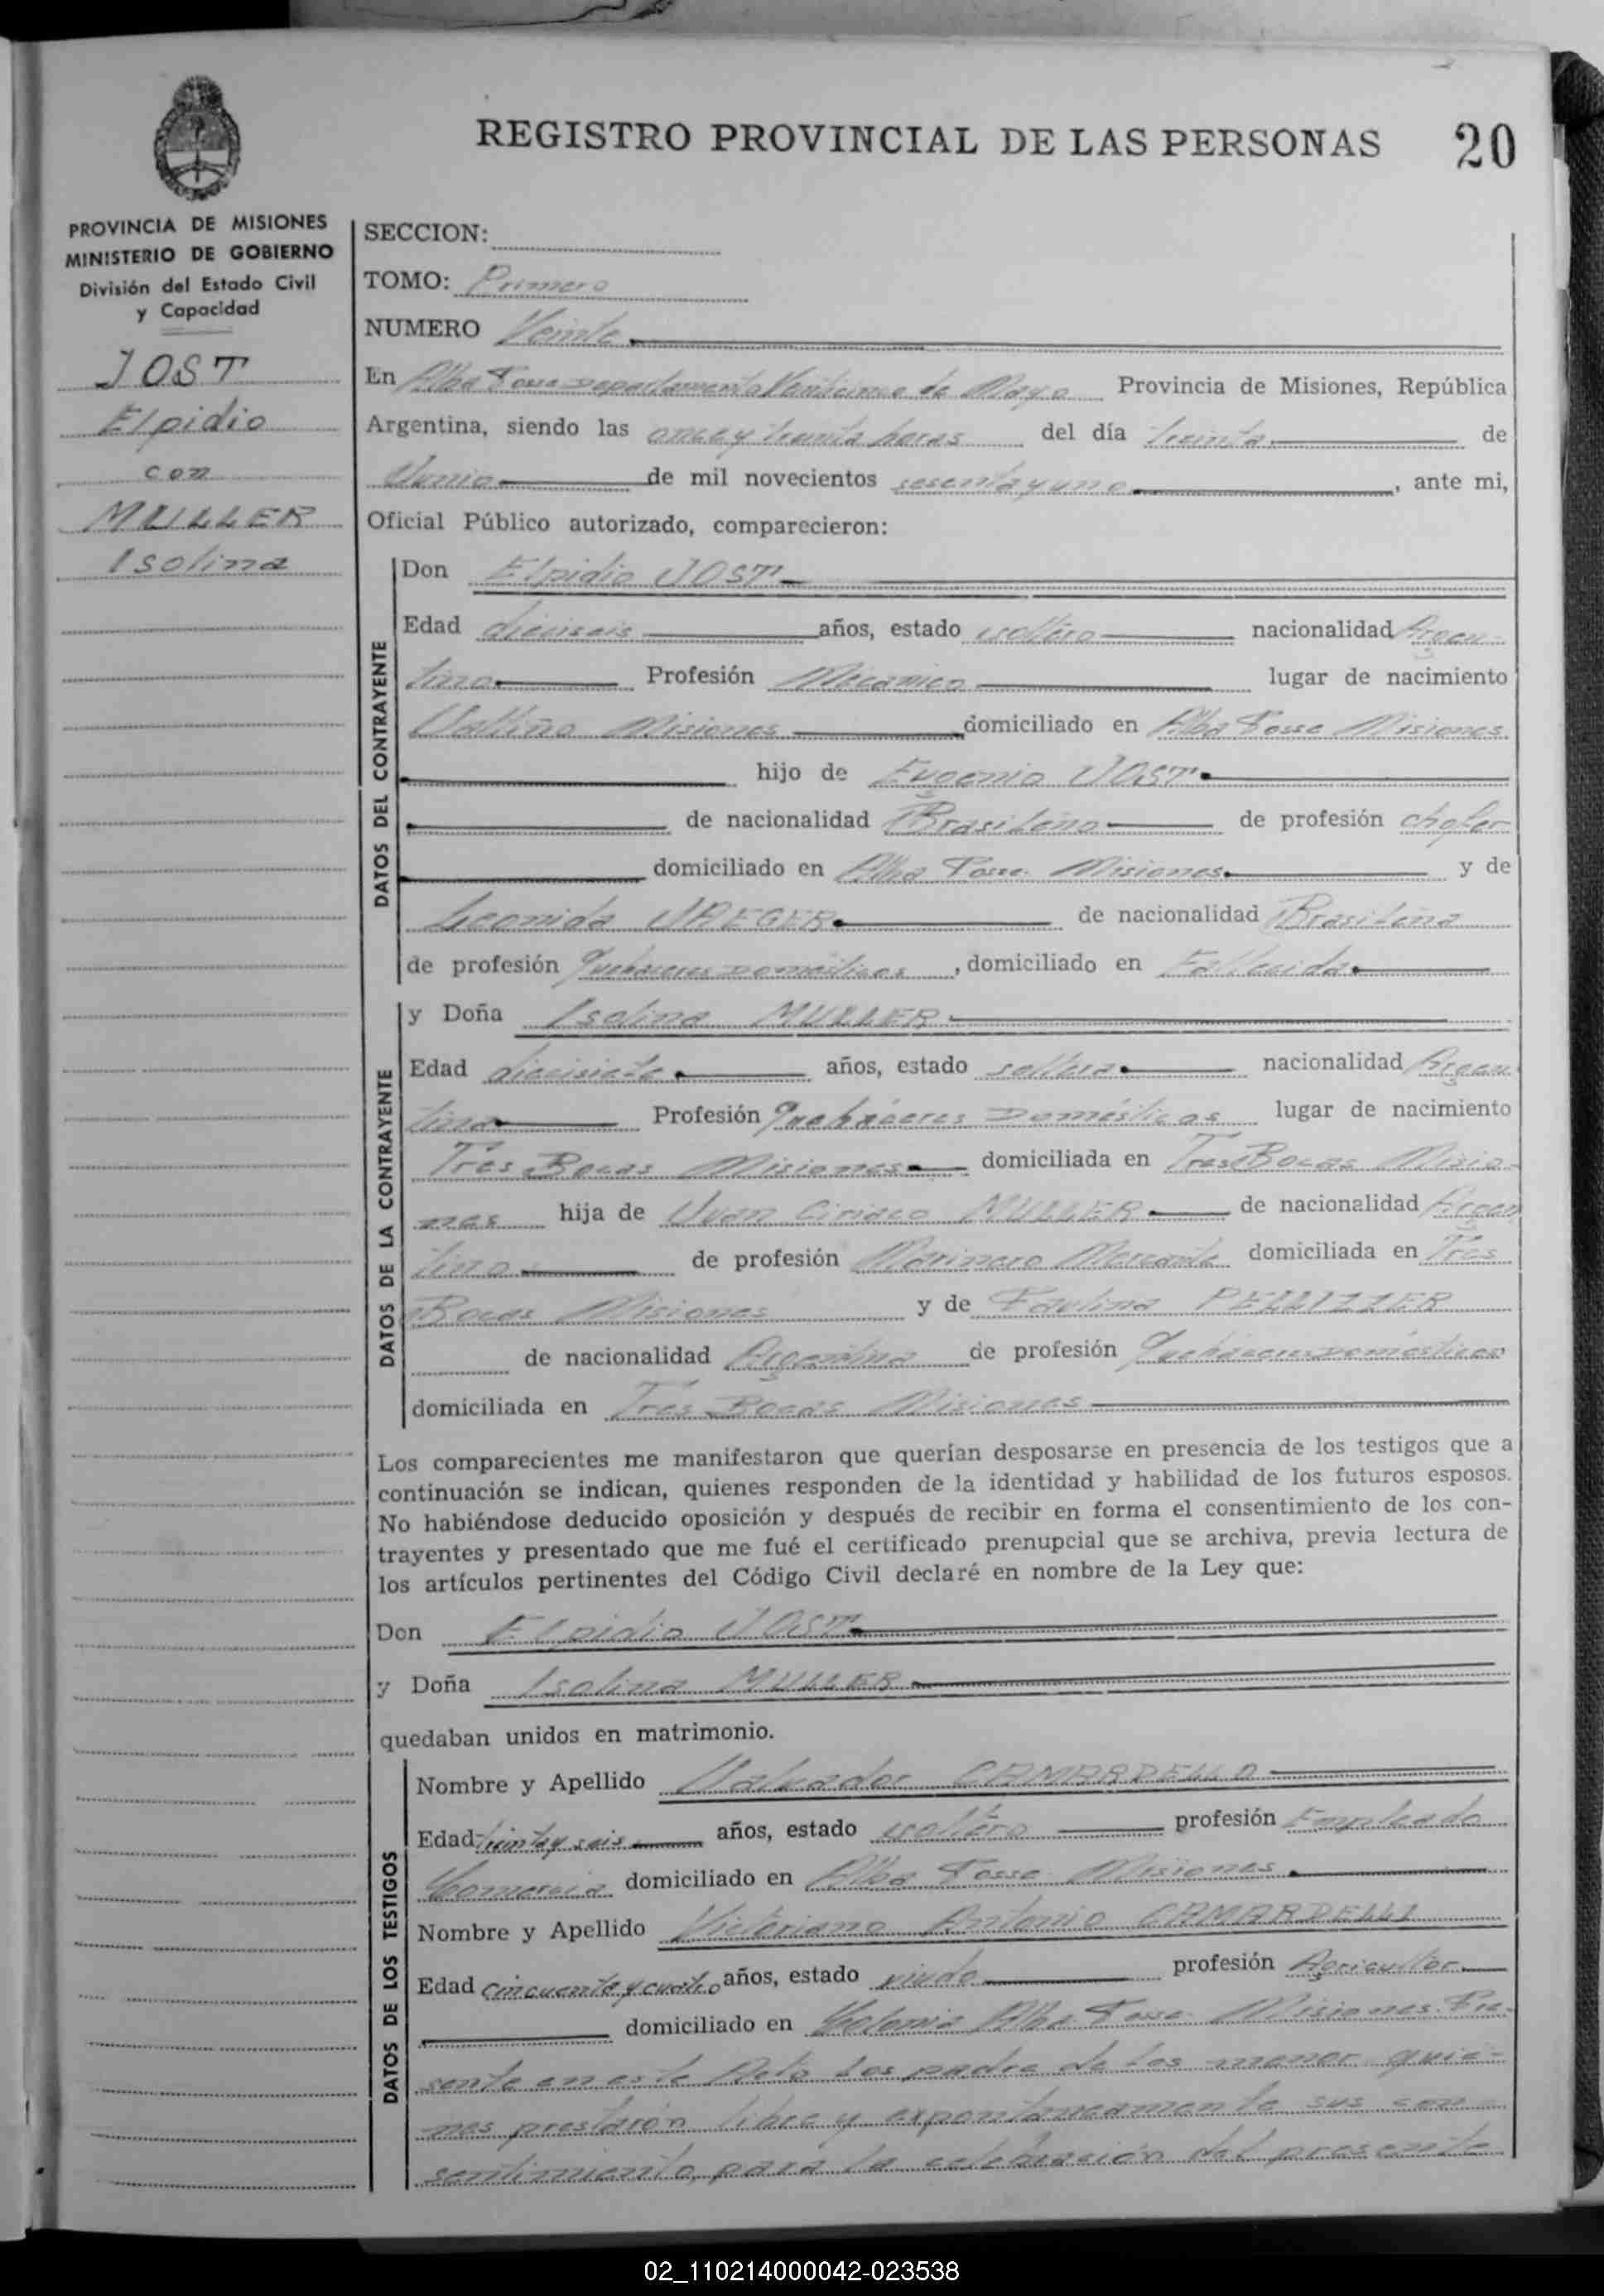 REGISTRO PROVINCIAL DE LAS PERSONAS 20
PROVINCIA DE MISIONES
MINISTERIO DE GOBIERNO
División del Estado Civil
y Capacidad
JOST
Elpidio
con
MULLER
Isolina
SECCION:
TOMO: Primero
NUMERO Veinte
En Alba Posse Departamento Veinticinco de Mayo Provincia de Misiones, República
Argentina, siendo las once y treinta horas del día treinta de
Junio de mil novecientos sesenta y uno, ante mi,
Oficial Público autorizado, comparecieron:
DATOS DEL CONTRAYENTE
Don Elpidio JOST
Edad dieciseis años, estado soltero nacionalidad Argen-
tino Profesión Mecanico lugar de nacimiento
Misiones domiciliado en Alba Posse Misiones
hijo de Eugenio JOST
de nacionalidad Brasileño de profesión chofer
domiciliado en Alba Posse Misiones y de
Leonida JAEGER de nacionalidad Brasileña
de profesión Quehaceres Domésticos, domiciliado en Fallecida
DATOS DE LA CONTRAYENTE
y Doña Isolina MULLER
Edad diecisiete años, estado soltera nacionalidad Argen
tina Profesión Quehaceres Domésticos lugar de nacimiento
Tres Bocas Misiones domiciliada en Tres Bocas Misio-
nes hija de Juan Ciriaco MULLER de nacionalidad Argen
tino de profesión Marinero Mercante domiciliada en Tres
Bocas Misiones y de Paulina PELLIZZER
de nacionalidad Argentina de profesión Quehaceres Domésticos
domiciliada en Tres Bocas Misiones
Los comparecientes me manifestaron que querían desposarse en presencia de los testigos que a
continuación se indican, quienes responden de la identidad y habilidad de los futuros esposos.
No habiéndose deducido oposición y después de recibir en forma el consentimiento de los con-
trayentes y presentado que me fué el certificado prenupcial que se archiva, previa lectura de
los artículos pertinentes del Código Civil declaré en nombre de la Ley que:
Don Elpidio JOST
y Doña Isolina MULLER
quedaban unidos en matrimonio.
DATOS DE LOS TESTIGOS
Nombre y Apellido Salvador CAMARDELLO
Edad treinta y seis años, estado soltero profesión Empleado
Comercio domiciliado en Alba Posse Misiones
Nombre y Apellido Victoriano Antonio CAMARDELLI
Edad cincuenta y cuatro años, estado viudo profesión Agricultor
domiciliado en Colonia Alba Posse Misiones. Pre-
sente en este Acto los padre de los menor quie-
nes prestarón libre y expontaneamente sus con
sentimiento, para la celebración del presente
02_110214000042-023538